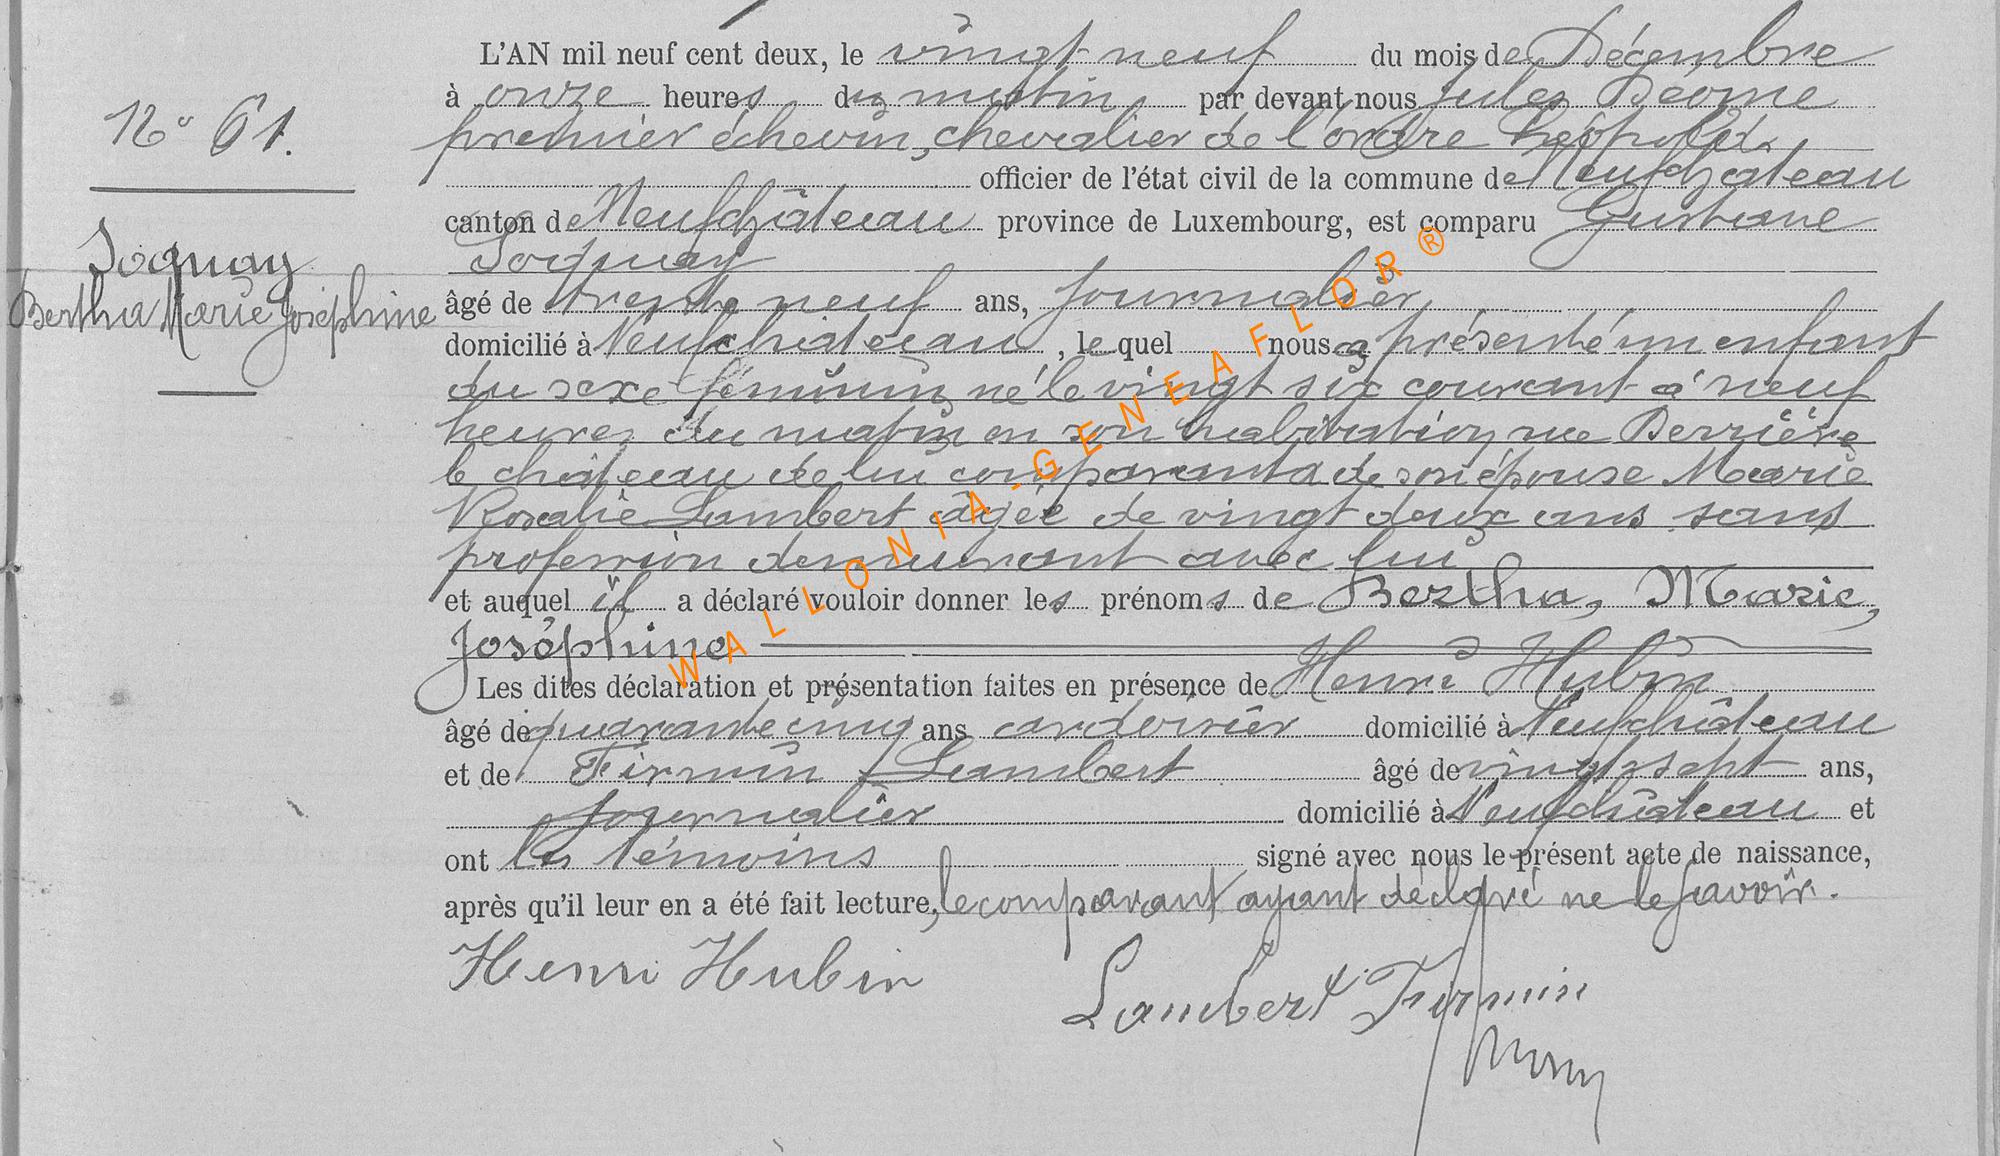 L'AN mil neuf cent deux, le vingt neuf du mois de Décembre
à onze heures du matin par devant nous Jules
premier échevin, chevalier de l'ordre Léopold.
officier de l'état civil de la commune de Neufchateau
canton de Neufchâteau province de Luxembourg, est comparu Gustave
Soquay
âgé de trente neuf ans, journalier,
domicilié à Neufchâteau, le quel nous a présenté un enfant
du sexe féminin, né le vingt six courant à neuf
heures du matin en son habitation rue Derrière
le château de lui comparant & de son épouse Marie
Rosalie Lambert âgée de vingt deux ans sans
profession demeurant avec lui
et auquel il a déclaré vouloir donner les prénoms de Bertha, Marie,
Joséphine
Les dites déclaration et présentation faites en présence de Henri Hubin
âgé de quarante cinq ans ardoisier domicilié à Neufchâteau
et de Firmin Lambert âgé de vingt sept ans,
journalier domicilié à Neufchâteau et
ont les témoins signé avec nous le présent acte de naissance,
après qu'il leur en a été fait lecture, le comparant ayant déclaré ne le savoir.
Henri Hubin
Lambert Firmin
N° 61.
Soquay
Bertha Marie Joséphine
WALLONIA-GENEAFLOR®